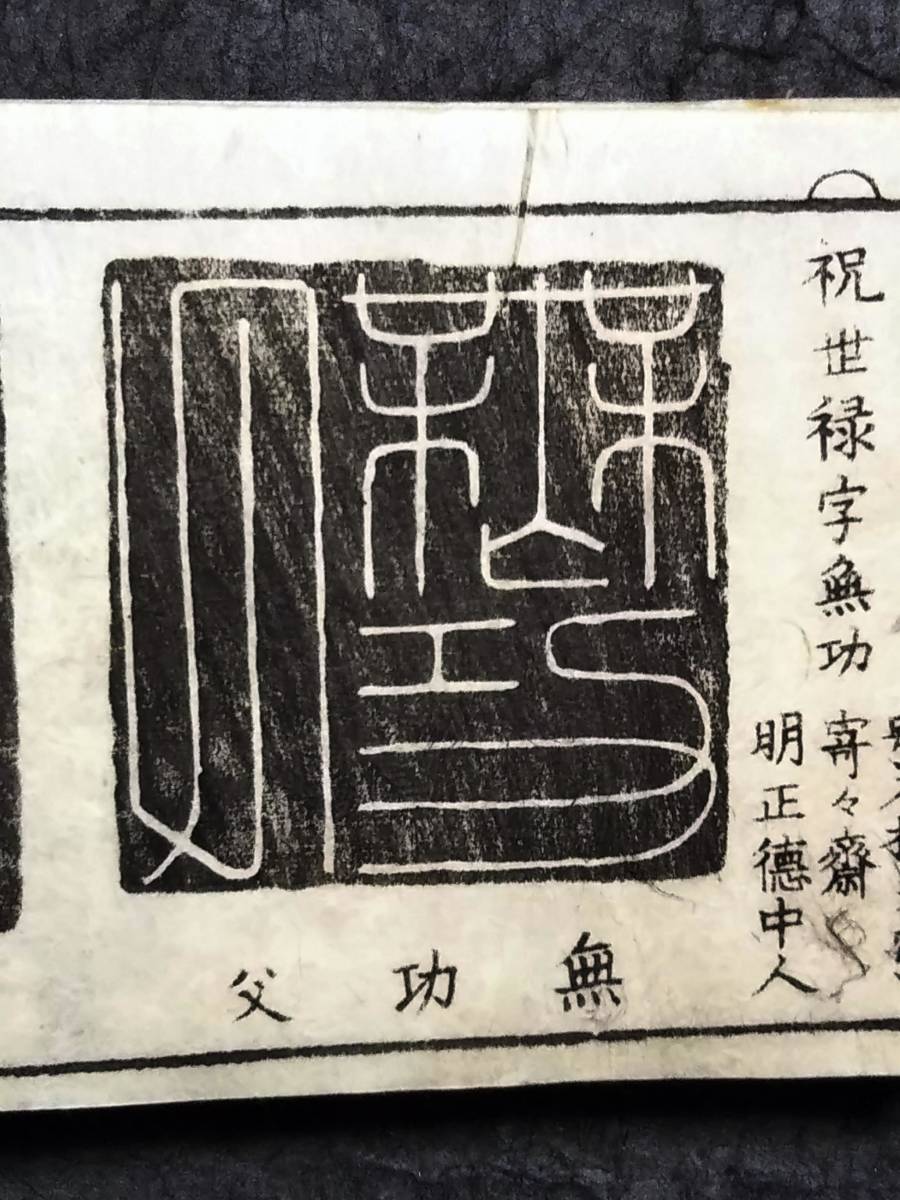 祝世禄字無功
寄々齋
明正德中人
無功父
無功父